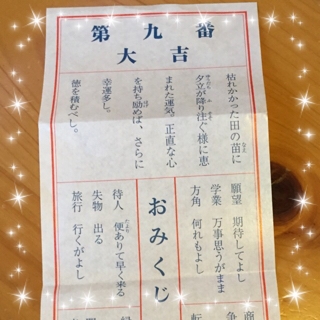 第九番
大吉
枯れかかった田の苗に
夕立が降り注ぐ様に恵
まれた運気。正直な心
を持ち励めば、さらに
幸運多し。
徳を積むべし。
おみくじ
願望 期待してよし
学業 万事思うがまま
方角 何れもよし
待人 便ありて早く来る
失物 出る
旅行 行くがよし
商
争
転